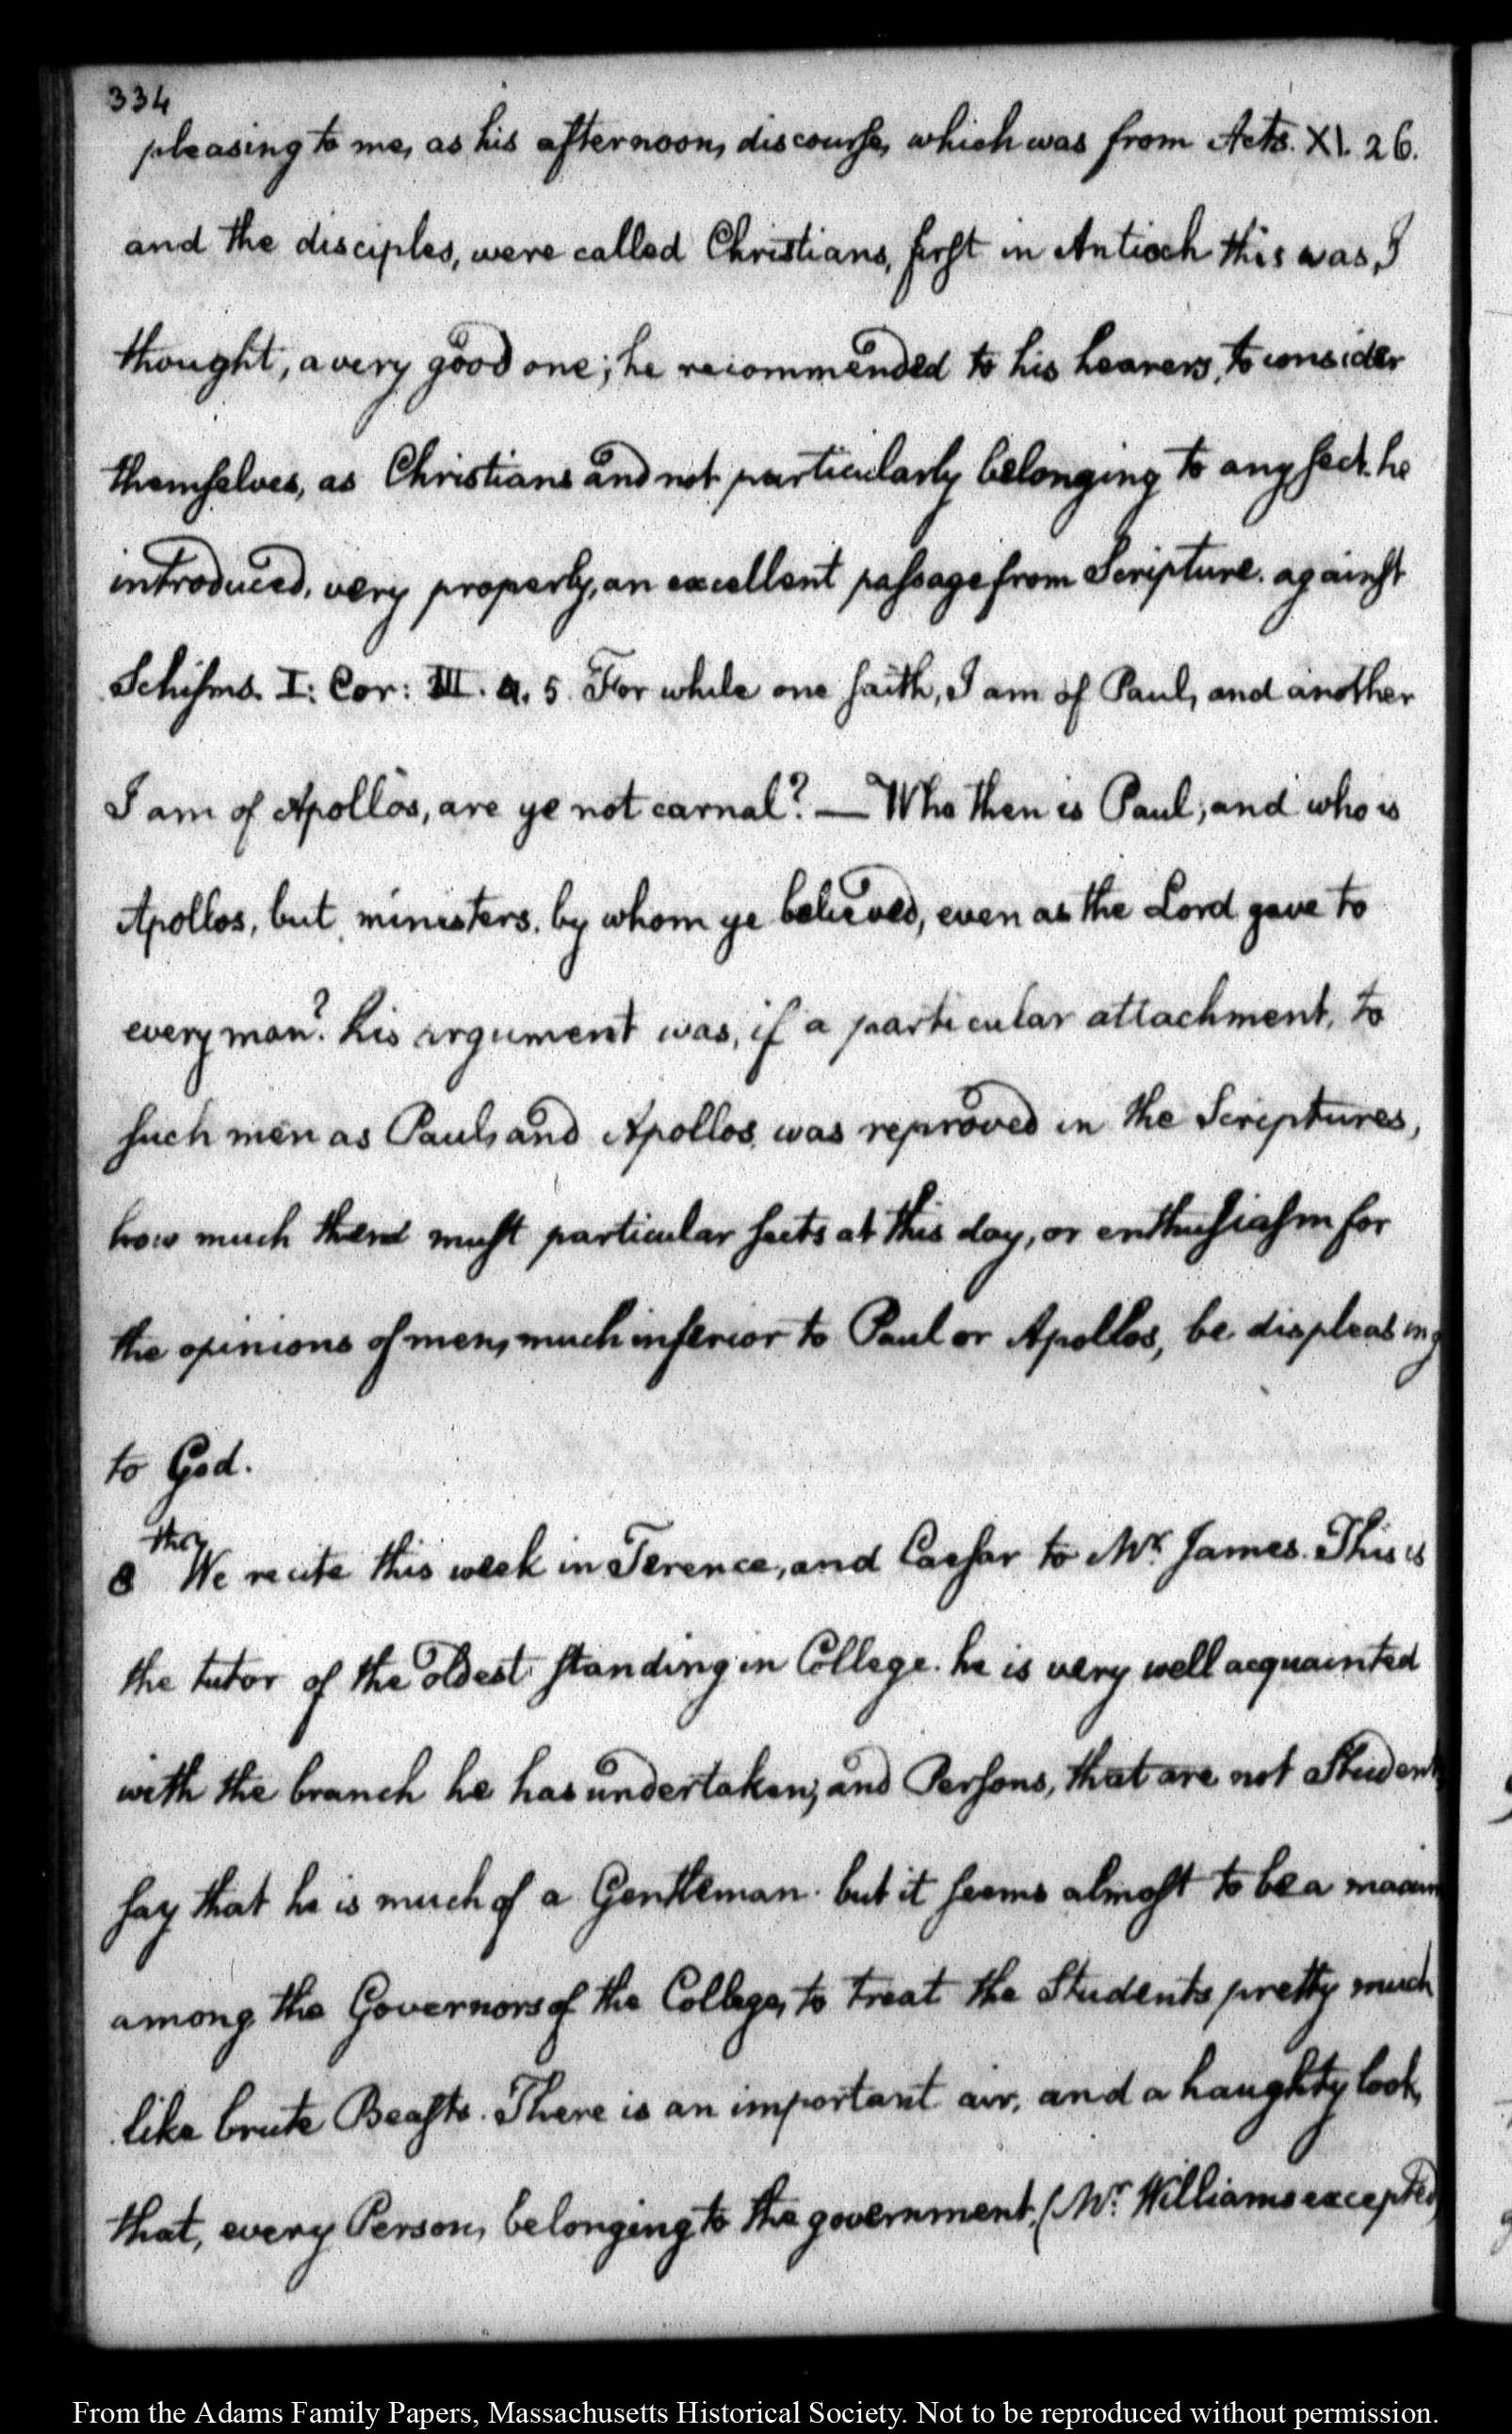 334
pleasing to me, as his afternoon, discourse, which was from Acts. XI. 26.
and the disciples, were called Christians, first in Antioch this was, I
thought, a very good one; he recommended to his hearers, to consider
themselves, as Christians and not particularly belonging to any sect. he
introduced, very properly, an excellent passage from Scripture. against
Schisms. I: Cor: III. 4. 5. For while one saith, I am of Paul, and another
I am of Apollos, are ye not carnal? — Who then is Paul, and who is
Apollos, but, ministers, by whom ye believed, even as the Lord gave to
every man? his argument was, if a particular attachment, to
such men as Paul, and Apollos, was reproved in the Scriptures,
how much then must particular sects at this day, or enthusiasm for
the opinions of men, much inferior to Paul or Apollos, be displeasing
to God.
8th We recite this week in Terence, and Caesar to Mr. James. This is
the tutor of the oldest standing in College. he is very well acquainted
with the branch he has undertaken; and Persons, that are not Students
say that he is much of a Gentleman. but it seems almost to be a maxim
among the Governors of the College, to treat the Students pretty much
like brute Beasts. There is an important air, and a haughty look,
that, every Person, belonging to the government, (Mr. Williams excepted)
From the Adams Family Papers, Massachusetts Historical Society. Not to be reproduced without permission.